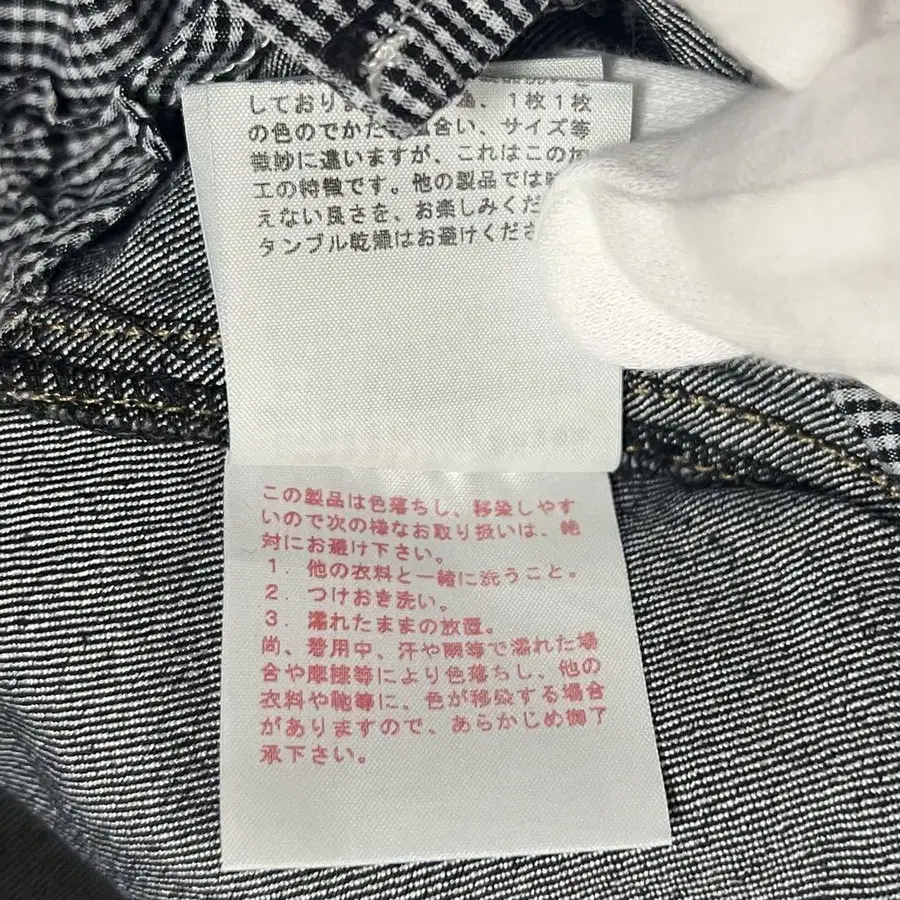 しておりま 為、1枚1枚
の色のでかた 合い、サイズ等
微妙に違いますが、これはこの加
工の特徴です。他の製品では
えない良さを、お楽しみくだ
タンブル乾燥はお避けくださ
この製品は色落ちし、移染しやす
いので次の様なお取り扱いは、絶
対にお避け下さい。
1. 他の衣料と一緒に洗うこと。
2. つけおき洗い。
3. 濡れたままの放置。
尚、着用中、汗や雨等で濡れた場
合や摩擦等により色落ちし、他の
衣料や靴等に、色が移染する場合
がありますので、あらかじめ御了
承下さい。